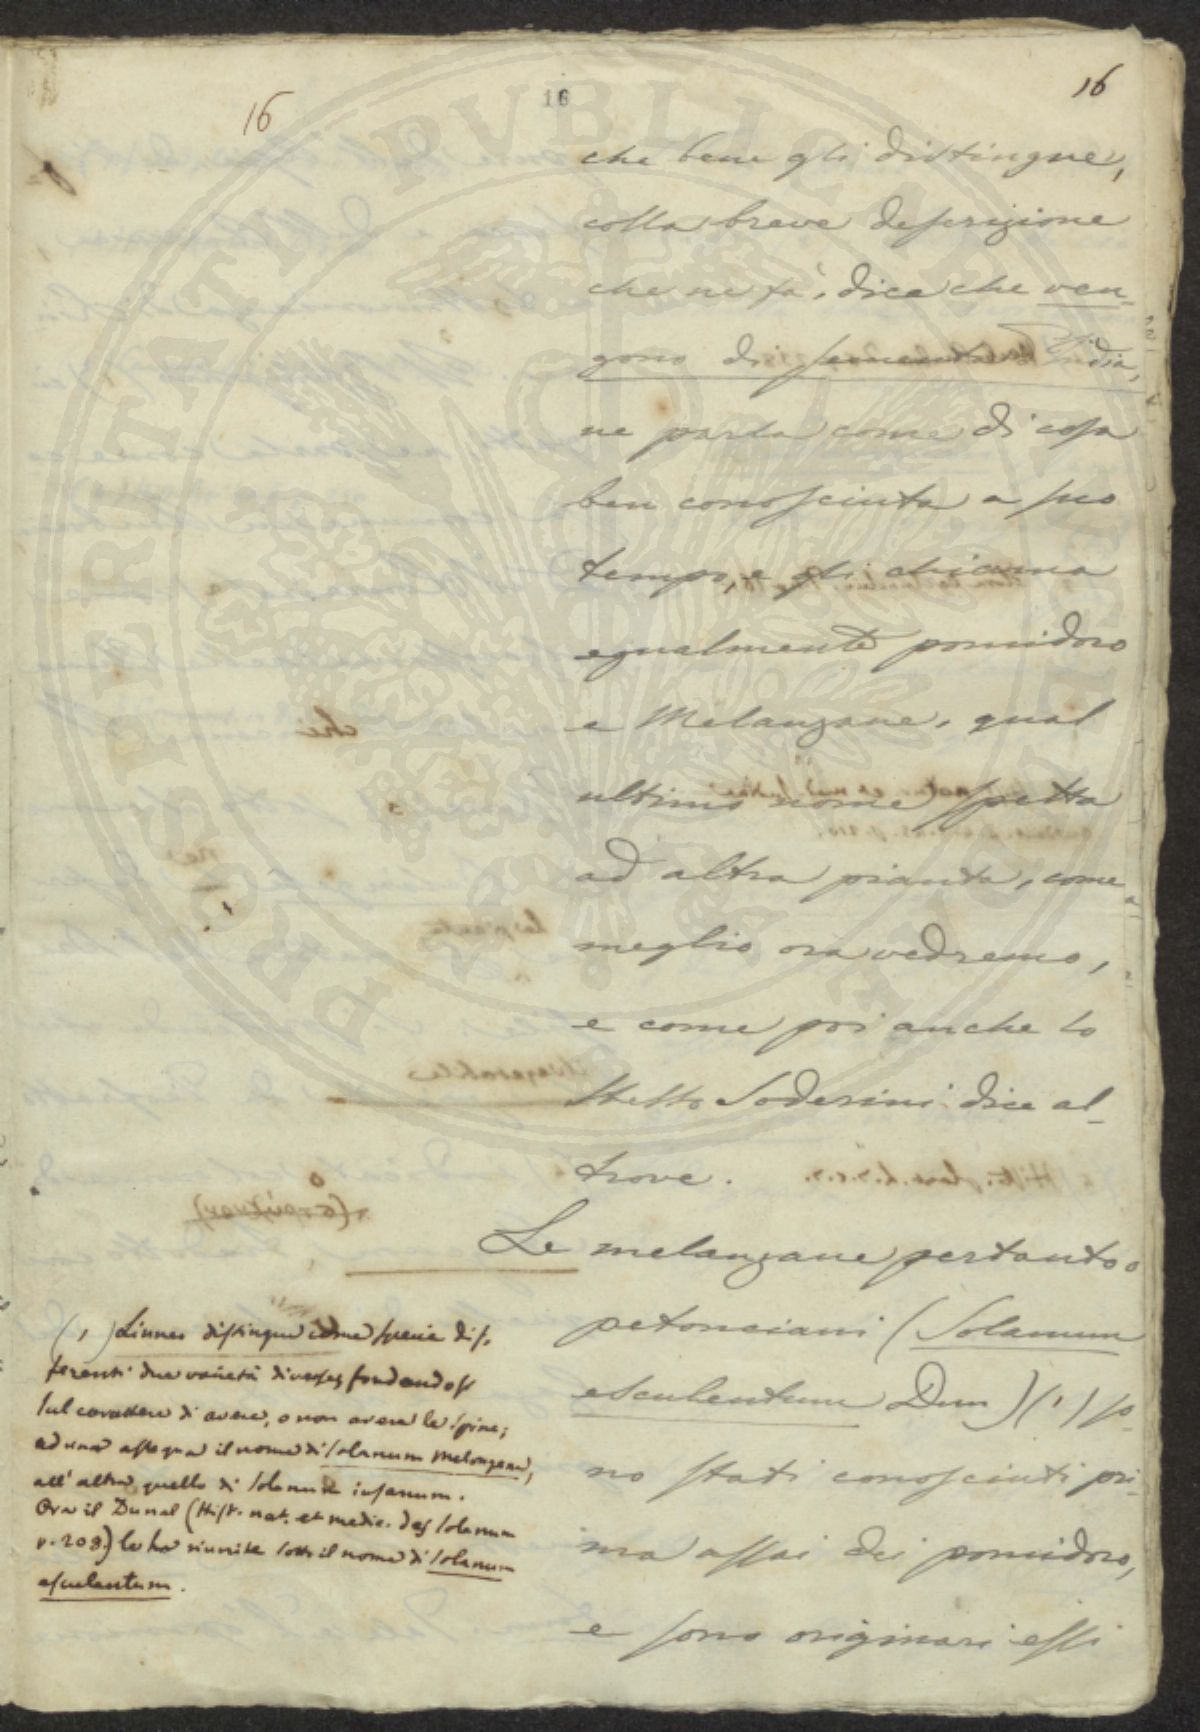 16
16
16
che bene gli distingue,
colla breve descrizione
che ne fà, dice che ven-
gono di semente d'India,
ne parla come di cosa
ben conosciuta a suo
tempo, e gli chiama
egualmente pomidoro
e Melanzane, qual
ultimo nome spetta
ad altra pianta, come
meglio ora vedremo,
e come poi anche lo
stesso Soderini dice al-
trove.
Le melanzane pertanto o
petonciani (Solanum
esculentum Dun)(1) so-
no stati conosciuti pri-
ma assai dei pomidoro,
e sono originari essi
(1) Linneo distingue come specie dif-
ferenti due varietà diverse, fondandosi
sul carattere di avere, o non avere le spine;
ad una assegna il nome di Solanum Melongena,
all'altra, quello di Solanum insanum.
Ora il Dunal (Hist. nat. et medic. des Solanum
p. 208.) le ha riunite sotto il nome di Solanum
esculentum.
PROSPERITATI PVBLICAE AVGENDAE